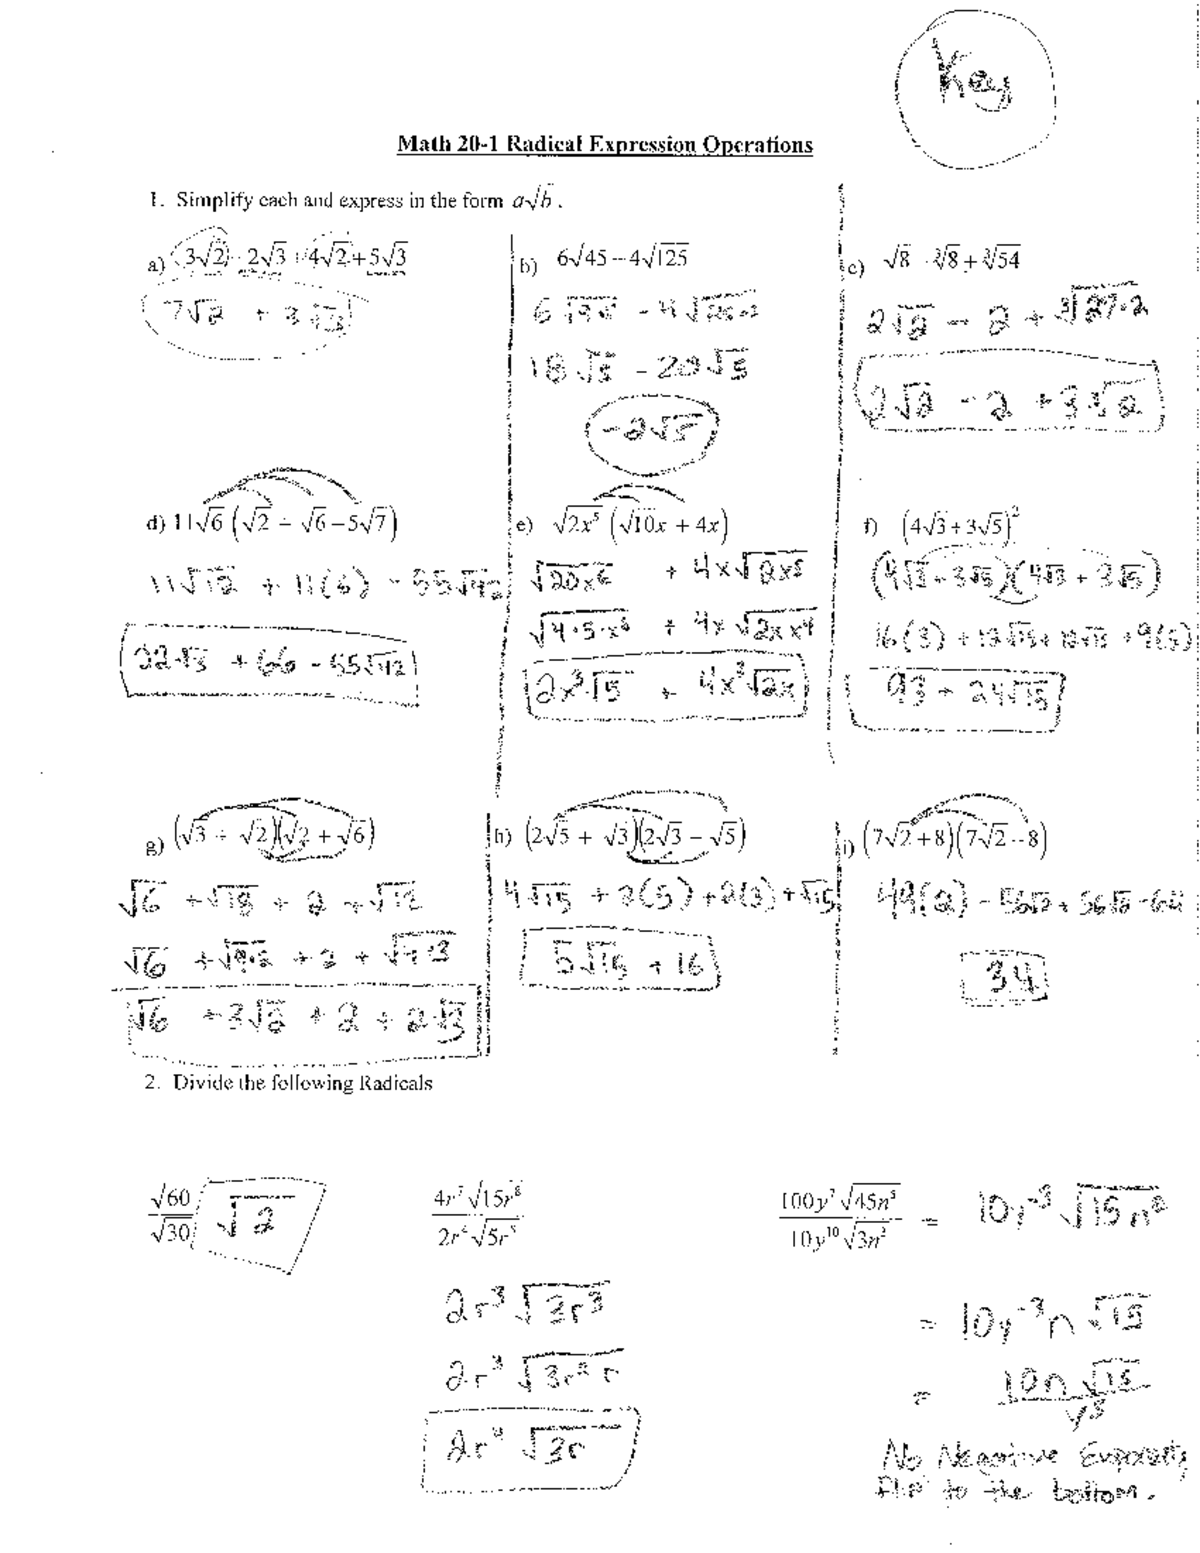 Key
Math 20-1 Radical Expression Operations
1. Simplify each and express in the form a√b .
a) 3√2 - 2√3 + 4√2 + 5√3
7√2 + 3√3
b) 6√45 - 4√125
6√9·5 - 4√25·5
18√5 - 20√5
-2√5
c) √8 - ∛8 + ∛54
2√2 - 2 + ∛27·2
2√2 - 2 + 3∛2
d) 11√6 (√2 + √6 - 5√7)
11√12 + 11(6) - 55√42
22√3 + 66 - 55√42
e) √2x⁵ (√10x + 4x)
√20x⁶ + 4x√2x⁵
√4·5·x⁶ + 4x√2x x⁴
2x³√5 + 4x³√2x
f) (4√3 + 3√5)²
(4√3 + 3√5)(4√3 + 3√5)
16(3) + 12√15 + 12√15 + 9(5)
93 + 24√15
g) (√3 + √2)(√2 + √6)
√6 + √18 + 2 + √12
√6 + √9·2 + 2 + √4·3
√6 + 3√2 + 2 + 2√3
h) (2√5 + √3)(2√3 - √5)
4√15 + 2(5) + 2(3) + √15
5√15 + 16
i) (7√2 + 8)(7√2 - 8)
49(2) - 56√2 + 56√2 - 64
34
2. Divide the following Radicals
√60
√30
√2
4r⁷√15r⁸
2r⁴√5r⁵
2r³√3r³
2r³√3r²r
2r⁴√3r
100y⁷√45n⁵
10y¹⁰√3n²
= 10y⁻³√15n²
= 10y⁻³n√15
= 10n√15
y³
No Negative Exponents
flip to the bottom.